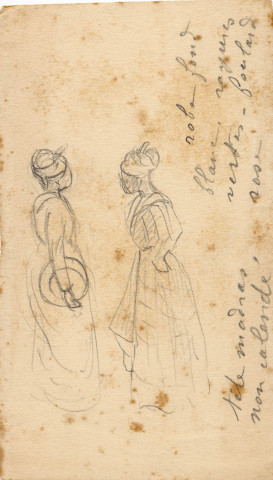 robe fond
blanc rayures
vertes - foulard
rose
tête madras,
non calendé